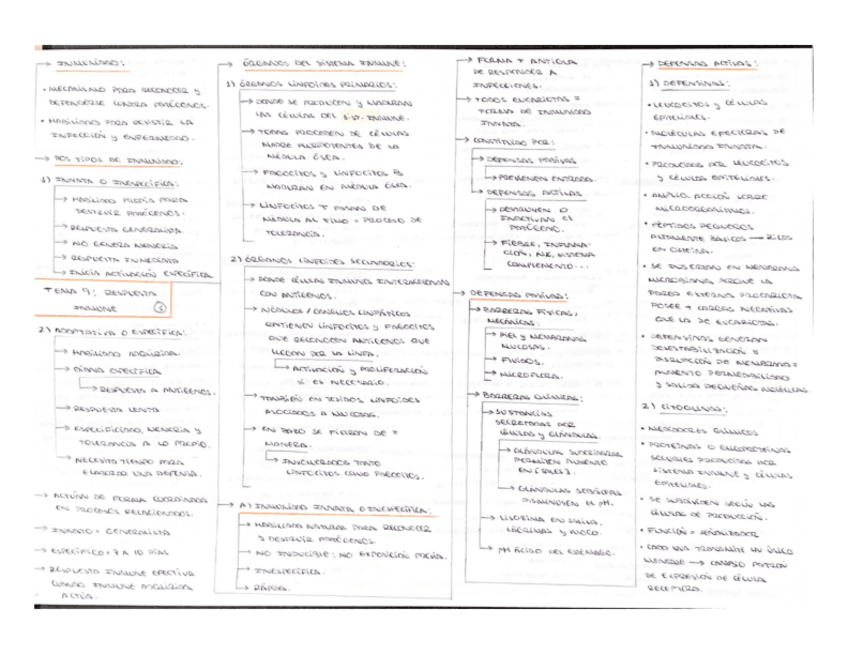 → INMUNIDAD:
• MECANISMO PARA RECONOCER Y
DEFENDERSE CONTRA PATÓGENOS.
• HABILIDAD PARA RESISTIR LA
INFECCIÓN Y ENFERMEDAD.
→ DOS TIPOS DE INMUNIDAD:
1) INNATA O INESPECÍFICA:
→ HABILIDAD PREVIA PARA
DESTRUIR PATÓGENOS.
→ RESPUESTA GENERALISTA
→ NO GENERA MEMORIA
→ RESPUESTA INMEDIATA
→ INICIA ACTIVACIÓN ESPECÍFICA
TEMA 9: RESPUESTA
INMUNE
2) ADAPTATIVA O ESPECÍFICA:
→ HABILIDAD ADQUIRIDA.
→ DIANA ESPECÍFICA
→ RESPUESTA A ANTÍGENOS.
→ RESPUESTA LENTA
→ ESPECIFICIDAD, MEMORIA Y
TOLERANCIA A LO PROPIO.
→ NECESITA TIEMPO PARA
ELABORAR UNA DEFENSA.
→ ACTÚAN DE FORMA COORDINADA
EN PROCESOS RELACIONADOS.
→ INNATO = GENERALISTA
→ ESPECÍFICO = 7 A 10 DÍAS
→ RESPUESTA INMUNE EFECTIVA
CUANDO INMUNE ADQUIRIDA
ACTÚA.
→ ÓRGANOS DEL SISTEMA INMUNE:
1) ÓRGANOS LINFOIDES PRIMARIOS:
→ DONDE SE PRODUCEN Y MADURAN
LAS CÉLULAS DEL SIST. INMUNE.
→ TODAS PROCEDEN DE CÉLULAS
MADRE PLURIPOTENTES DE LA
MÉDULA ÓSEA.
→ FAGOCITOS Y LINFOCITOS B
MADURAN EN MÉDULA ÓSEA.
→ LINFOCITOS T PASAN DE
MÉDULA AL TIMO = PROCESO DE
TOLERANCIA.
2) ÓRGANOS LINFOIDES SECUNDARIOS:
→ DONDE CÉLULAS INMUNES INTERACCIONAN
CON ANTÍGENOS.
→ NÓDULOS / GANGLIOS LINFÁTICOS
CONTIENEN LINFOCITOS Y FAGOCITOS
QUE RECONOCEN ANTÍGENOS QUE
LLEGAN POR LA LINFA.
→ ACTIVACIÓN Y PROLIFERACIÓN
SI ES NECESARIO.
→ TAMBIÉN EN TEJIDOS LINFOIDES
ASOCIADOS A MUCOSAS.
→ EN BAZO SE FILTRAN DE =
MANERA.
→ INVOLUCRADOS TANTO
LINFOCITOS COMO FAGOCITOS.
→ A) INMUNIDAD INNATA O INESPECÍFICA:
→ HABILIDAD NATURAL PARA RECONOCER
Y DESTRUIR PATÓGENOS.
→ NO INDUCIBLE: NO EXPOSICIÓN PREVIA.
→ INESPECÍFICA.
→ RÁPIDA.
→ FORMA + ANTIGUA
DE RESPONDER A
INFECCIONES.
→ TODOS EUCARIOTAS =
FORMA DE INMUNIDAD
INNATA.
→ CONSTITUIDO POR:
→ DEFENSAS PASIVAS
→ PREVIENEN ENTRADA.
→ DEFENSAS ACTIVAS
→ DESTRUYEN O
INACTIVAN EL
PATÓGENO.
→ FIEBRE, INFLAMA-
CIÓN, NK, SISTEMA
COMPLEMENTO...
→ DEFENSAS PASIVAS:
→ BARRERAS FÍSICAS,
MECÁNICAS:
→ PIEL Y MEMBRANAS
MUCOSAS.
→ FLUIDOS.
→ MICROFLORA.
→ BARRERAS QUÍMICAS:
→ SUSTANCIAS
SECRETADAS POR
CÉLULAS Y GLÁNDULAS.
→ GLÁNDULAS SUDORÍPARAS
PERMITEN AUMENTO
EN [SALES].
→ GLÁNDULAS SEBÁCEAS
DISMINUYEN EL PH.
→ LISOZIMA EN SALIVA,
LÁGRIMAS Y MOCO.
→ PH ÁCIDO DEL ESTÓMAGO.
→ DEFENSAS ACTIVAS:
1) DEFENSINAS:
• LEUCOCITOS Y CÉLULAS
EPITELIALES.
• MOLÉCULAS EFECTORAS DE
INMUNIDAD INNATA.
• PRODUCIDAS POR LEUCOCITOS
Y CÉLULAS EPITELIALES.
• AMPLIO ACCIÓN SOBRE
MICROORGANISMOS.
• PÉPTIDOS PEQUEÑOS
ALTAMENTE BÁSICOS → RICOS
EN CISTEÍNA.
• SE INSERTAN EN MEMBRANA
MICROBIANA PORQUE LA
PARED EXTERNA PROCARIOTA
POSEE + CARGAS NEGATIVAS
QUE LA DE EUCARIOTAS.
• DEFENSINAS GENERAN
DESESTABILIZACIÓN Y
DISRUPCIÓN DE MEMBRANA =
AUMENTO PERMEABILIDAD
Y SALIDA PEQUEÑAS MOLÉCULAS
2) CITOQUINAS:
• MEDIADORES QUÍMICOS
• PROTEÍNAS O GLICOPROTEÍNAS
SOLUBLES PRODUCIDAS POR
SISTEMA INMUNE Y CÉLULAS
EPITELIALES.
• SE SUBDIVIDEN SEGÚN LAS
CÉLULAS DE PRODUCCIÓN.
• FUNCIÓN = SEÑALIZADOR
• CADA UNA TRANSMITE UN ÚNICO
MENSAJE → CAMBIO PATRÓN
DE EXPRESIÓN DE CÉLULA
RECEPTORA.